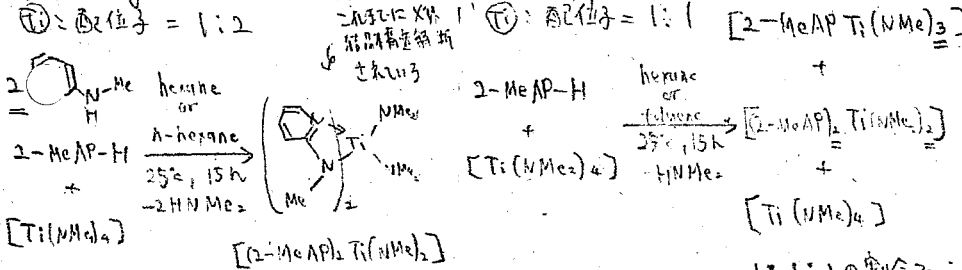 Ti : 配位子 = 1 : 2
これまでに X線
結晶構造解析
されている
2
N-Me
H
2-MeAP-H
+
[Ti(NMe2)4]
hexane
or
n-hexane
25℃, 15h
-2HNMe2
N
Ti
NMe2
NMe2
N
Me
2
[(2-MeAP)2 Ti(NMe2)2]
Ti : 配位子 = 1 : 1
2-MeAP-H
+
[Ti(NMe2)4]
hexane
or
toluene
25℃, 15h
-HNMe2
[2-MeAP Ti(NMe2)3]
+
[(2-MeAP)2 Ti(NMe2)2]
+
[Ti(NMe2)4]